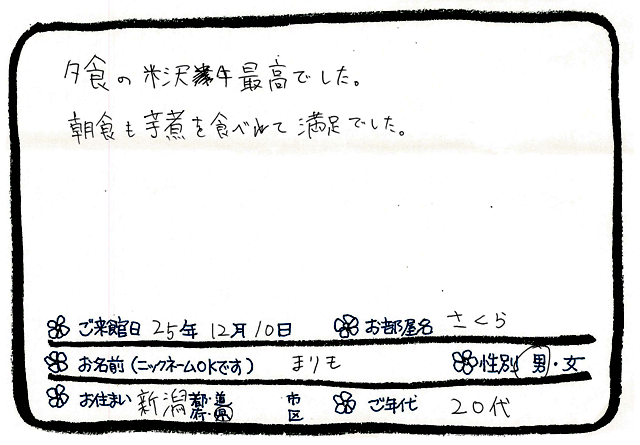 夕食の米沢牛最高でした。
朝食も芋煮を食べれて満足でした。
ご来館日 25年 12月 10日 お部屋名 さくら
お名前(ニックネームOKです) まりも 性別 男・女
お住まい 新潟 都・道・府・県 市区 ご年代 20代